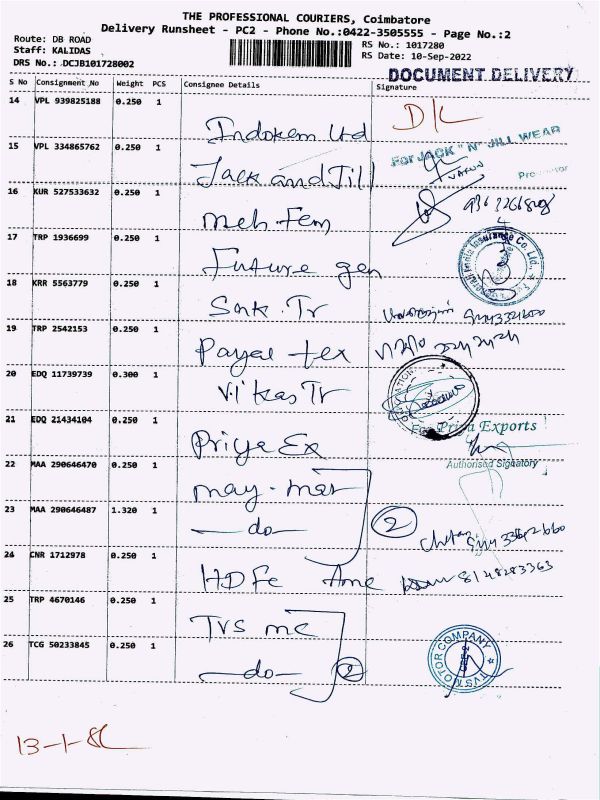 THE PROFESSIONAL COURIERS, Coimbatore
Delivery Runsheet - PC2 - Phone No.:0422-3505555 - Page No.:2
Route: DB ROAD
Staff: KALIDAS
DRS No.: DCJB101728002
RS No.: 1017280
RS Date: 10-Sep-2022
DOCUMENT DELIVERY
S No Consignment No Weight PCS Consignee Details Signature
14 VPL 939825188 0.250 1 Indokem Ltd
15 VPL 334865762 0.250 1 Jack and Jill
For JACK "N" JILL WEAR
16 KUR 527533632 0.250 1 Meh Fem
17 TRP 1936699 0.250 1 Future gen
18 KRR 5563779 0.250 1
19 TRP 2542153 0.250 1 Payal tex
20 EDQ 11739739 0.300 1 Vikas Tr
21 EDQ 21434104 0.250 1 Priya Ex
For Priya Exports
Authorised Signatory
22 MAA 290646470 0.250 1
23 MAA 290646487 1.320 1 -do- 2
24 CNR 1712978 0.250 1 HDFc Amc 8148283363
25 TRP 4670146 0.250 1 TVS mc
26 TCG 50233845 0.250 1 -do- 2
TVS MOTOR COMPANY